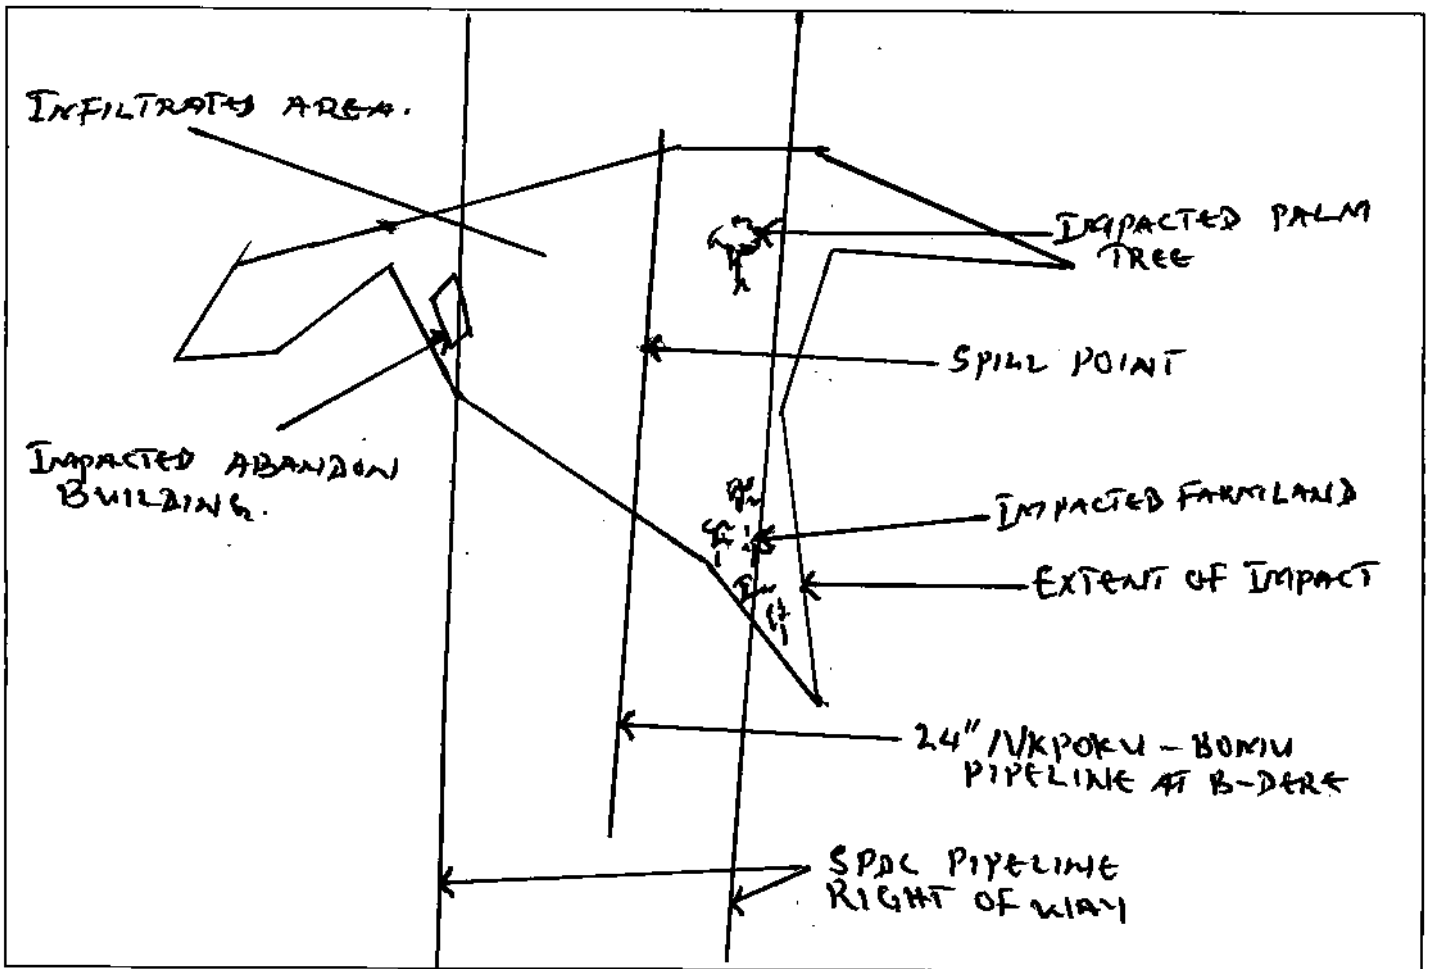 INFILTRATED AREA.
IMPACTED PALM
TREE
SPILL POINT
IMPACTED ABANDON
BUILDING.
IMPACTED FARMLAND
EXTENT OF IMPACT
24" NKPOKU - BOMU
PIPELINE AT B-DERE
SPDC PIPELINE
RIGHT OF WAY